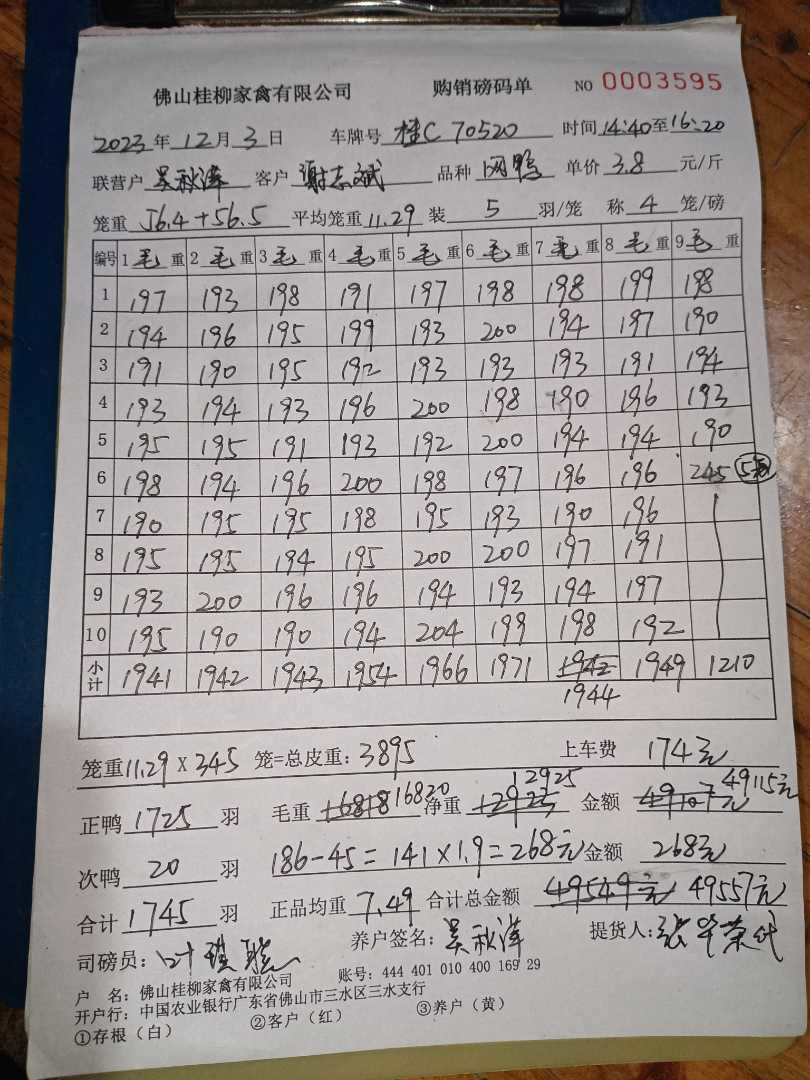 佛山桂柳家禽有限公司 购销磅码单 NO 0003595
2023年12月3日 车牌号 桂C 70520 时间14:40至16:20
联营户 吴秋泽 客户 谢志斌 品种 肉鸭 单价 3.8 元/斤
笼重 56.4+56.5 平均笼重 11.29 装 5 羽/笼 称 4 笼/磅
编号 1毛重 2毛重 3毛重 4毛重 5毛重 6毛重 7毛重 8毛重 9毛重
1 197 193 198 191 197 198 198 199 198
2 194 196 195 199 193 200 194 197 190
3 191 190 195 192 193 193 193 191 194
4 193 194 193 196 200 198 190 196 193
5 195 195 191 193 192 200 194 194 190
6 198 194 196 200 198 197 196 196 245
7 190 195 195 198 195 193 190 196
8 195 195 194 195 200 200 197 191
9 193 200 196 196 194 193 194 197
10 195 190 190 194 204 199 198 192
小计 1941 1942 1943 1954 1966 1971 1942 1949 1210
1944
笼重11.29 X 345 笼=总皮重:3895 上车费 174元
正鸭 1725 羽 毛重 16818 16820 净重 12923 12925 金额 49107元 49115元
次鸭 20 羽 186-45=141×1.9=268元 金额 268元
合计 1745 羽 正品均重 7.49 合计总金额 49549元 49557元
司磅员: 叶 养户签名: 吴秋泽 提货人: 张
户 名: 佛山桂柳家禽有限公司 账号: 444 401 010 400 169 29
开户行: 中国农业银行广东省佛山市三水区三水支行
①存根(白) ②客户(红) ③养户(黄)